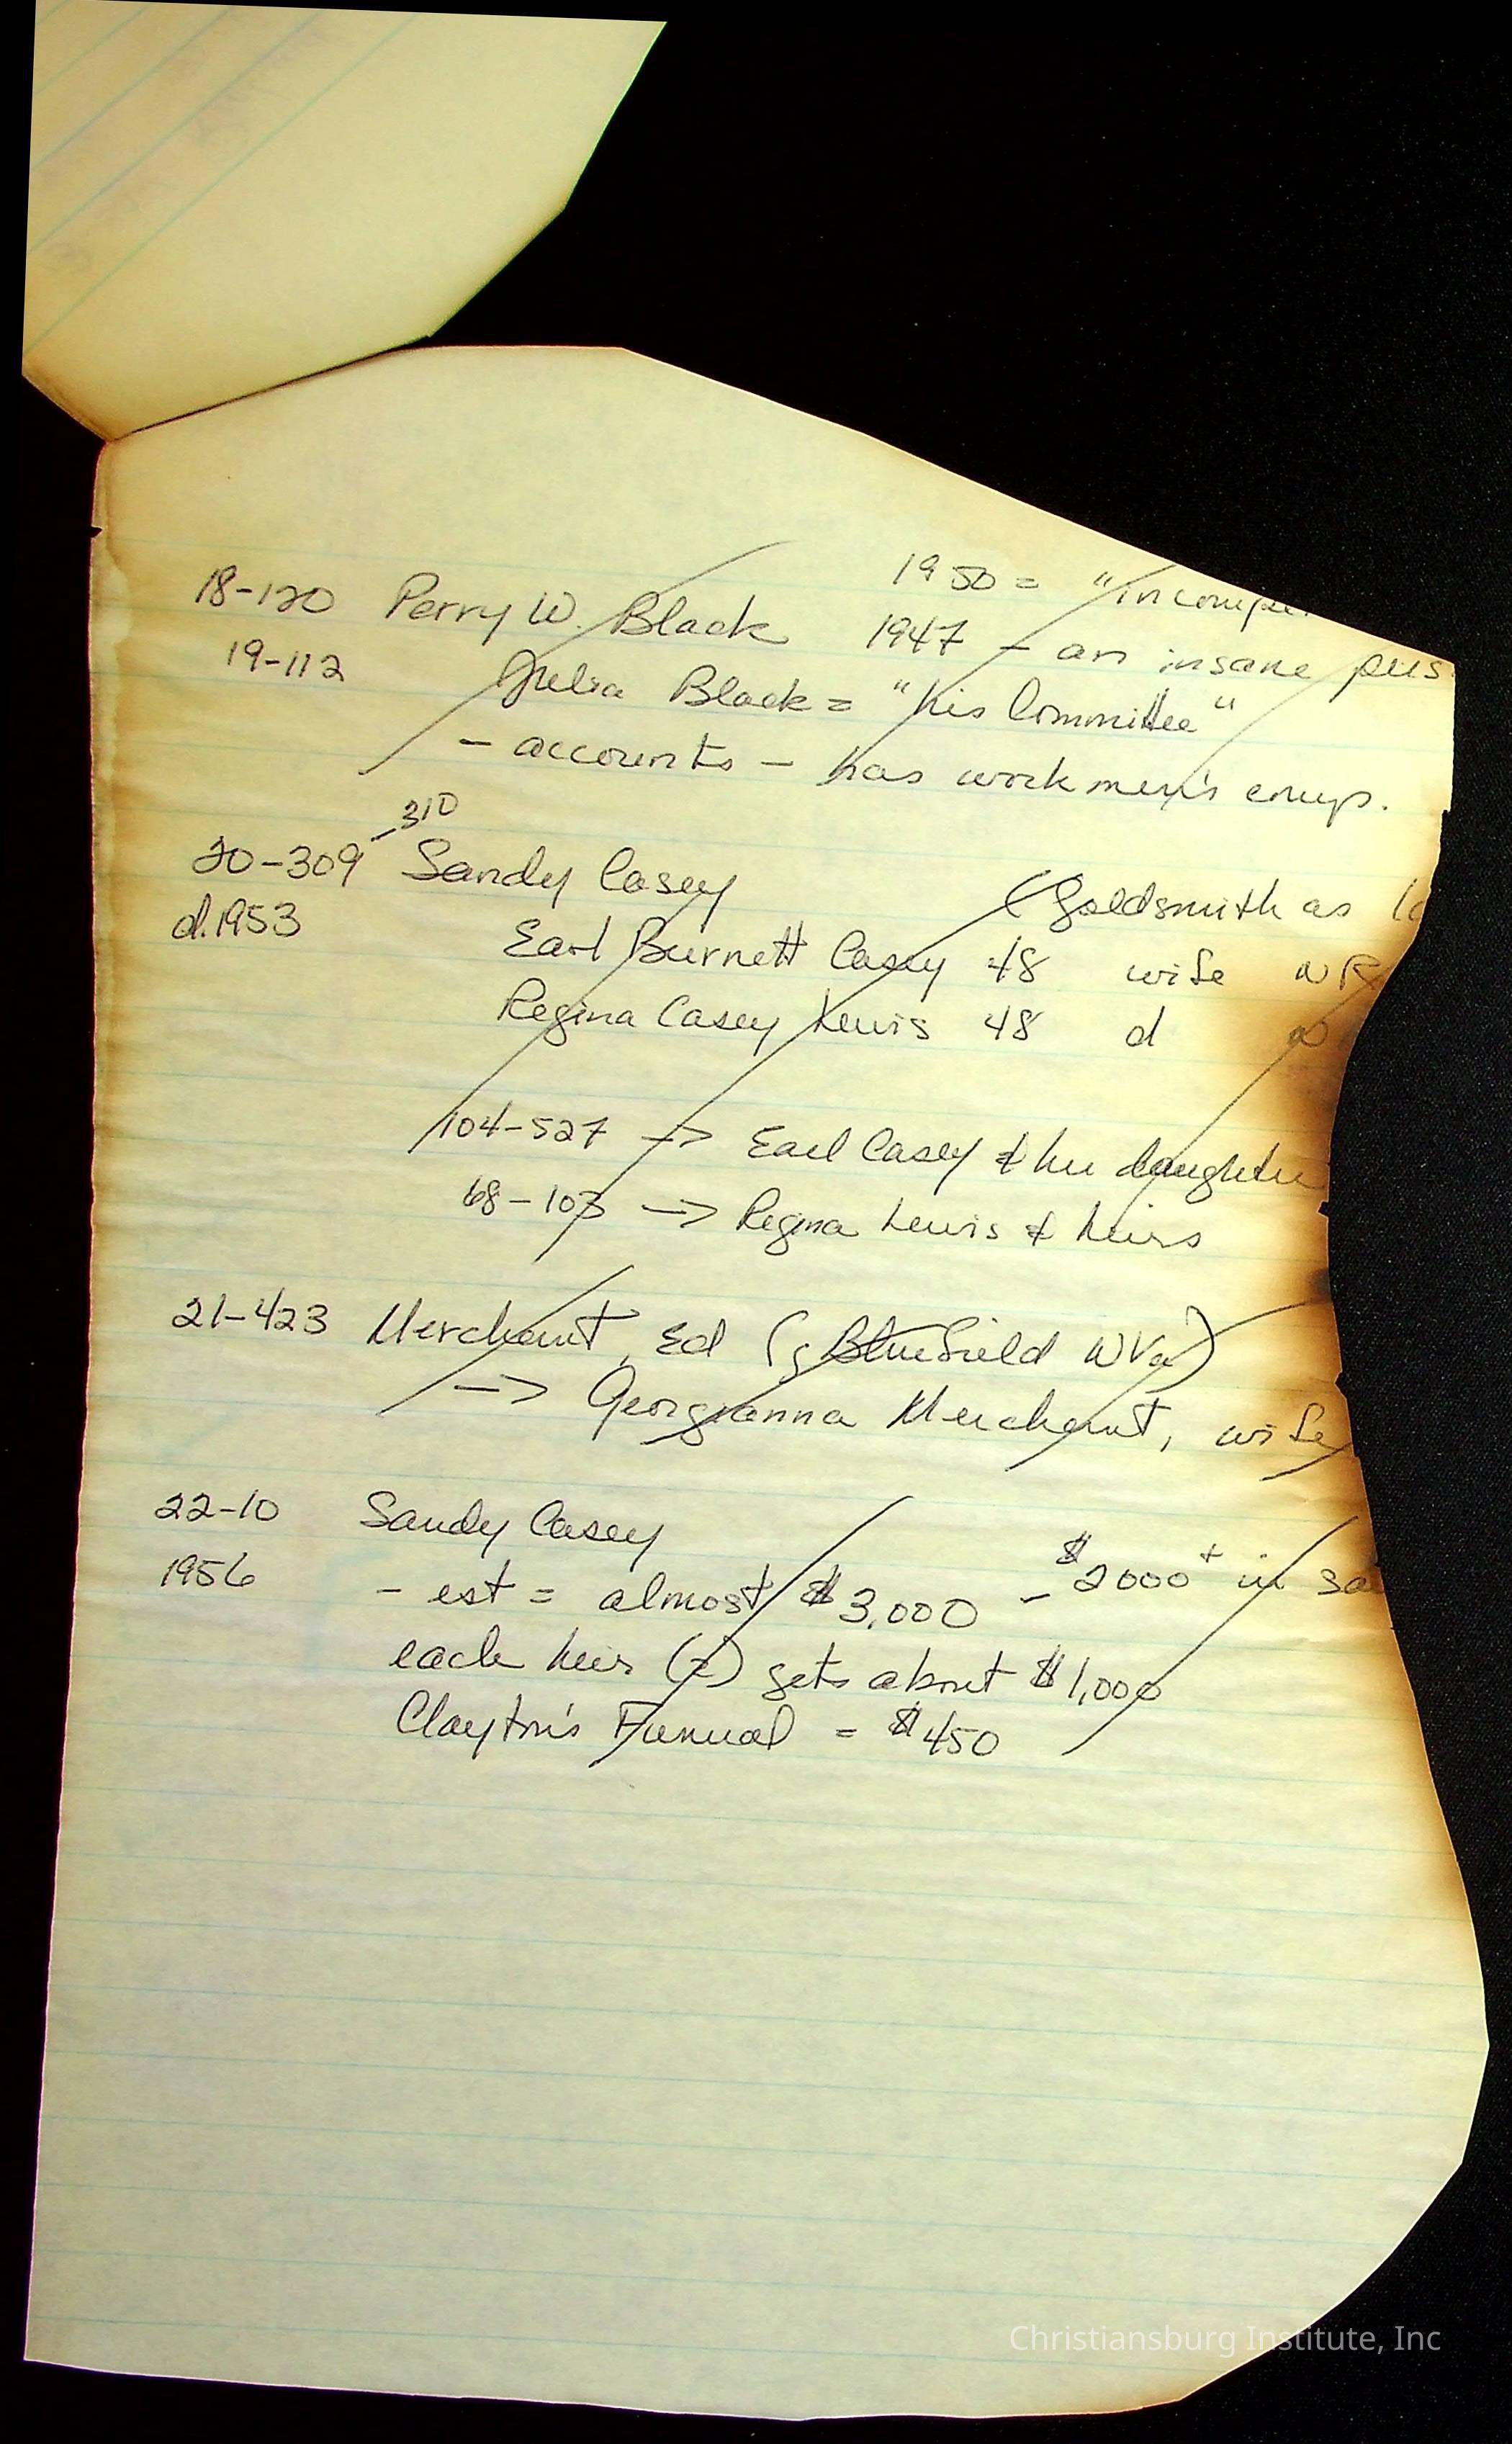 18-120 Perry W. Black 1950 = "incompe
19-112 1947 - an insane pers
Julia Black = "his Committee"
- accounts - has workmen's comp.
20-309 -310 Sandy Casey (Goldsmith as
d. 1953 Earl Burnett Casey 48 wife NR
Regina Casey Lewis 48 d
104-527 -> Earl Casey & her daughter
68-103 -> Regina Lewis & heirs
21-423 Merchant, Ed (of Bluefield WVa)
-> Georgianna Merchant, wife
22-10 Sandy Casey
1956 - est = almost $3,000 - $2000+ in
each heir (2) gets about $1,000
Clayton's Funual = $450
Christiansburg Institute, Inc